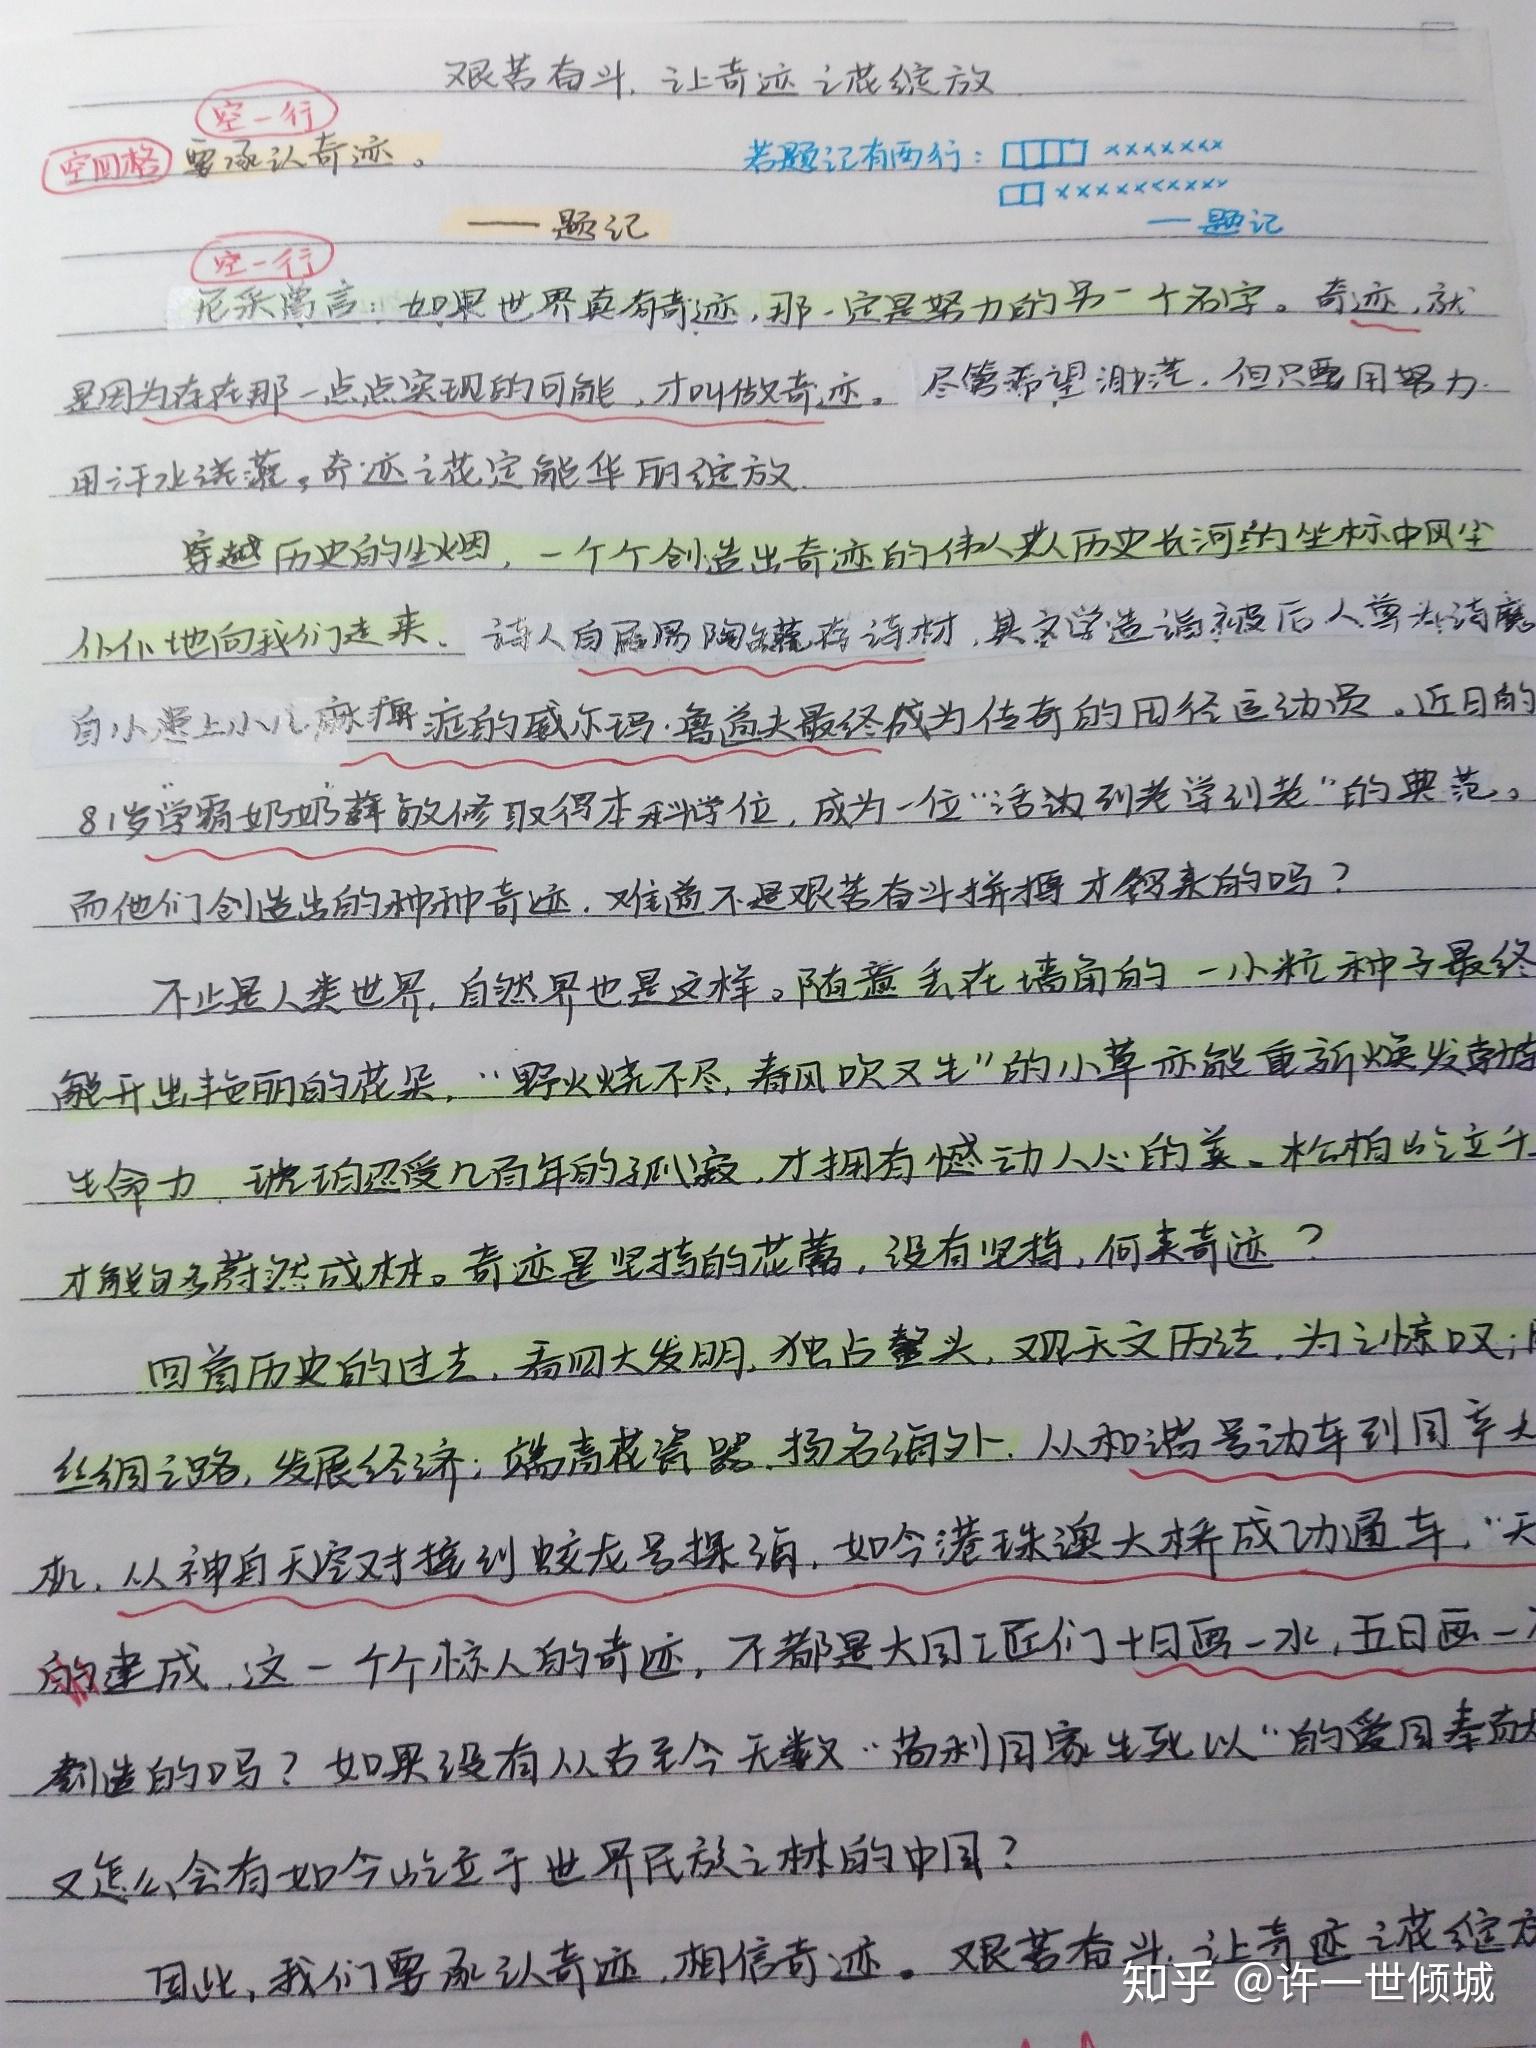 艰苦奋斗，让奇迹之花绽放
空一行
空四格 要承认奇迹。
若题记有两行：□□□□ ×××××××
□□××××××××××
——题记
—题记
空一行
尼采曾言：如果世界真有奇迹，那一定是努力的另一个名字。奇迹，就
是因为存在那一点点实现的可能，才叫做奇迹。尽管希望渺茫，但只要用努力
用汗水浇灌，奇迹之花定能华丽绽放
穿越历史的尘烟，一个个创造出奇迹的伟人从历史长河的坐标中风尘
仆仆地向我们走来。诗人白居易陶罐存诗材，其文学造诣被后人尊为诗魔
自小患上小儿麻痹症的威尔玛·鲁道夫最终成为传奇的田径运动员。近日的
81岁学霸奶奶薛敏修取得本科学位，成为一位“活到老学到老”的典范。
而他们创造出的种种奇迹，难道不是艰苦奋斗拼搏才得来的吗？
不止是人类世界，自然界也是这样。随意丢在墙角的一小粒种子最终
能开出艳丽的花朵，“野火烧不尽，春风吹又生”的小草亦能重新焕发勃勃
生命力，琥珀忍受几百年的孤寂，才拥有憾动人心的美。松柏屹立千
才能够蔚然成林。奇迹是坚持的花蕾，没有坚持，何来奇迹？
回首历史的过去，看四大发明，独占鳌头，观天文历法，为之惊叹；
丝绸之路，发展经济；瓷器，扬名海外，从和谐号动车到国产大
机，从神舟天空对接到蛟龙号探海，如今港珠澳大桥成功通车，“天
的建成，这一个个惊人的奇迹，不都是大国工匠们十日画一水，五日画一
创造的吗？如果没有从古至今无数“苟利国家生死以”的爱国奉献
又怎么会有如今屹立于世界民族之林的中国？
因此，我们要承认奇迹，相信奇迹。艰苦奋斗，让奇迹之花绽放
知乎 @许一世倾城